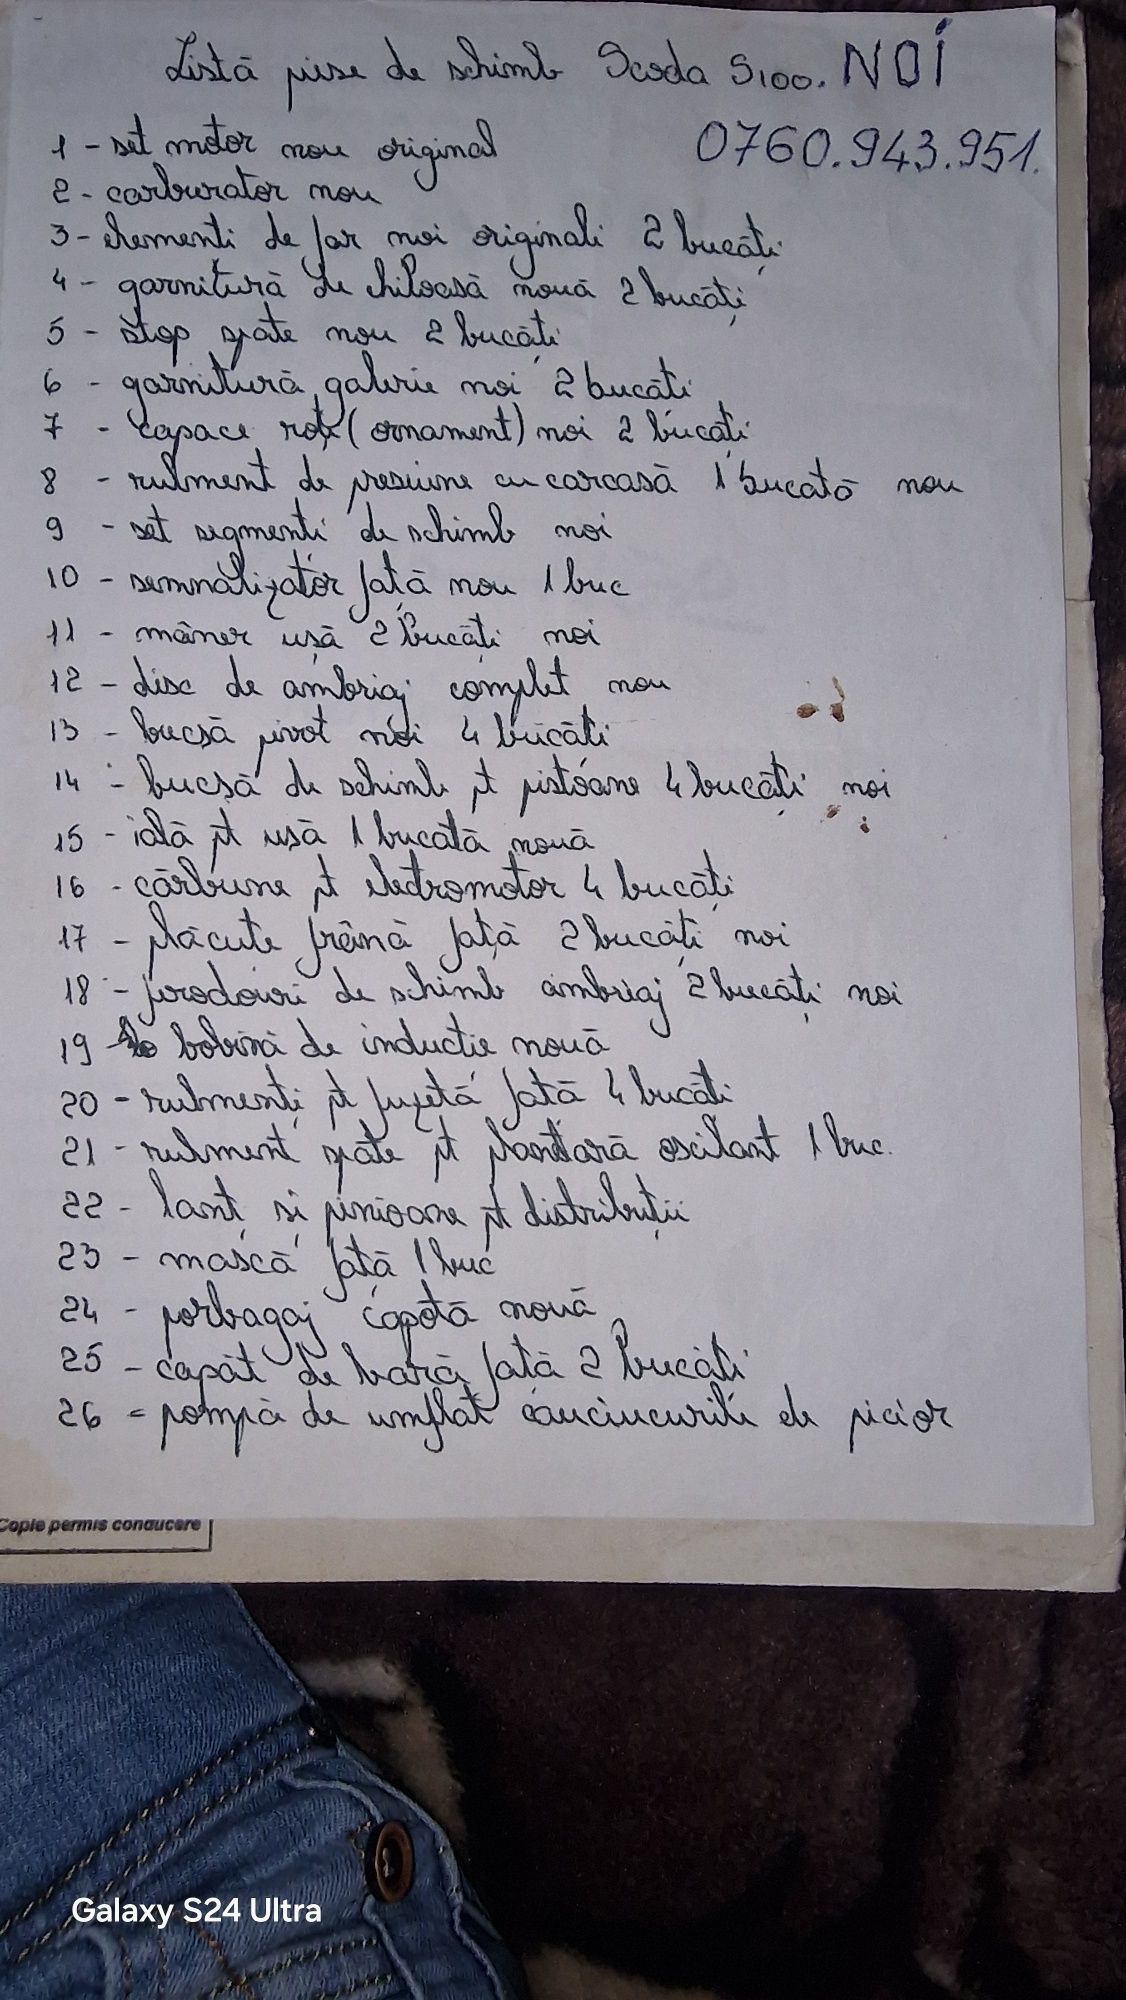 Listă piese de schimb Scoda S100. NOI
0760.943.951.
1 - set motor nou original
2 - carburator nou
3 - elementi de far noi originali 2 bucăți
4 - garnitură de chiloasă nouă 2 bucăți
5 - stop spate nou 2 bucăți
6 - garnitură galerie noi 2 bucăti
7 - capace roți (ornament) noi 2 bucăți
8 - rulment de presiune cu carcasă 1 bucată nou
9 - set segmenti de schimb noi
10 - semnalizator față nou 1 buc
11 - mâner ușă 2 bucăți noi
12 - disc de ambriaj complet nou
13 - bucsă pivot noi 4 bucăti
14 - bucșă de schimb pt pistoane 4 bucăți noi
15 - ială pt usă 1 bucată nouă
16 - cărbune pt electromotor 4 bucăți
17 - plăcute frână față 2 bucăți noi
18 - ferodouri de schimb ambriaj 2 bucăți noi
19 - bobină de inductie nouă
20 - rulmenți pt fuzetă fată 4 bucăti
21 - rulment spate pt planetară oscilant 1 buc.
22 - lanț și pinioane pt distribuții
23 - mască fată 1 buc
24 - porbagaj capotă nouă
25 - capăt de bară față 2 bucăti
26 - pompă de umflat cauciucurile de picior
Copie permis conducere
Galaxy S24 Ultra